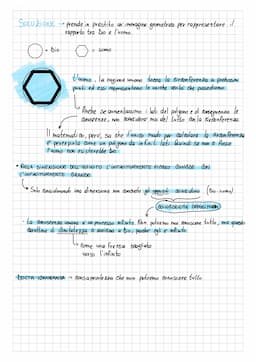 SOLUZIONE → prende in prestito un'immagine geometrica per rappresentare il
rapporto tra Dio e l'uomo.
= Dio = uomo
L'uomo, la ragione umana tocca la circonferenza in pochissimi
punti ed essi rappresentano le uniche verità che possediamo.
Anche se aumentassimo i lati del poligono e di conseguenza le
conoscenze, non toccheremmo mai del tutto la circonferenza
Il matematico, però, sa che l'unico modo per calcolare la circonferenza
è percepirla come un poligono da infiniti lati. Quindi se non ci fosse
l'uomo non esisterebbe Dio.
NELLA DIMENSIONE DELL'INFINITO L'INFINITAMENTE PICCOLO COINCIDE CON
L'INFINITAMENTE GRANDE
Solo considerando una dimensione non concreta gli opposti coincidono (Dio-uomo)
COINCIDENTIA OPPOSITORUM
La conoscenza umana è un processo infinito. Non potremo mai conoscere tutto, ma questo
carattere di ci avvicina a Dio, perché egli è infinito.
Come una freccia scagliata
verso l'infinito
DOTTA IGNORANZA → consapevolezza che non potremo conoscere tutto.